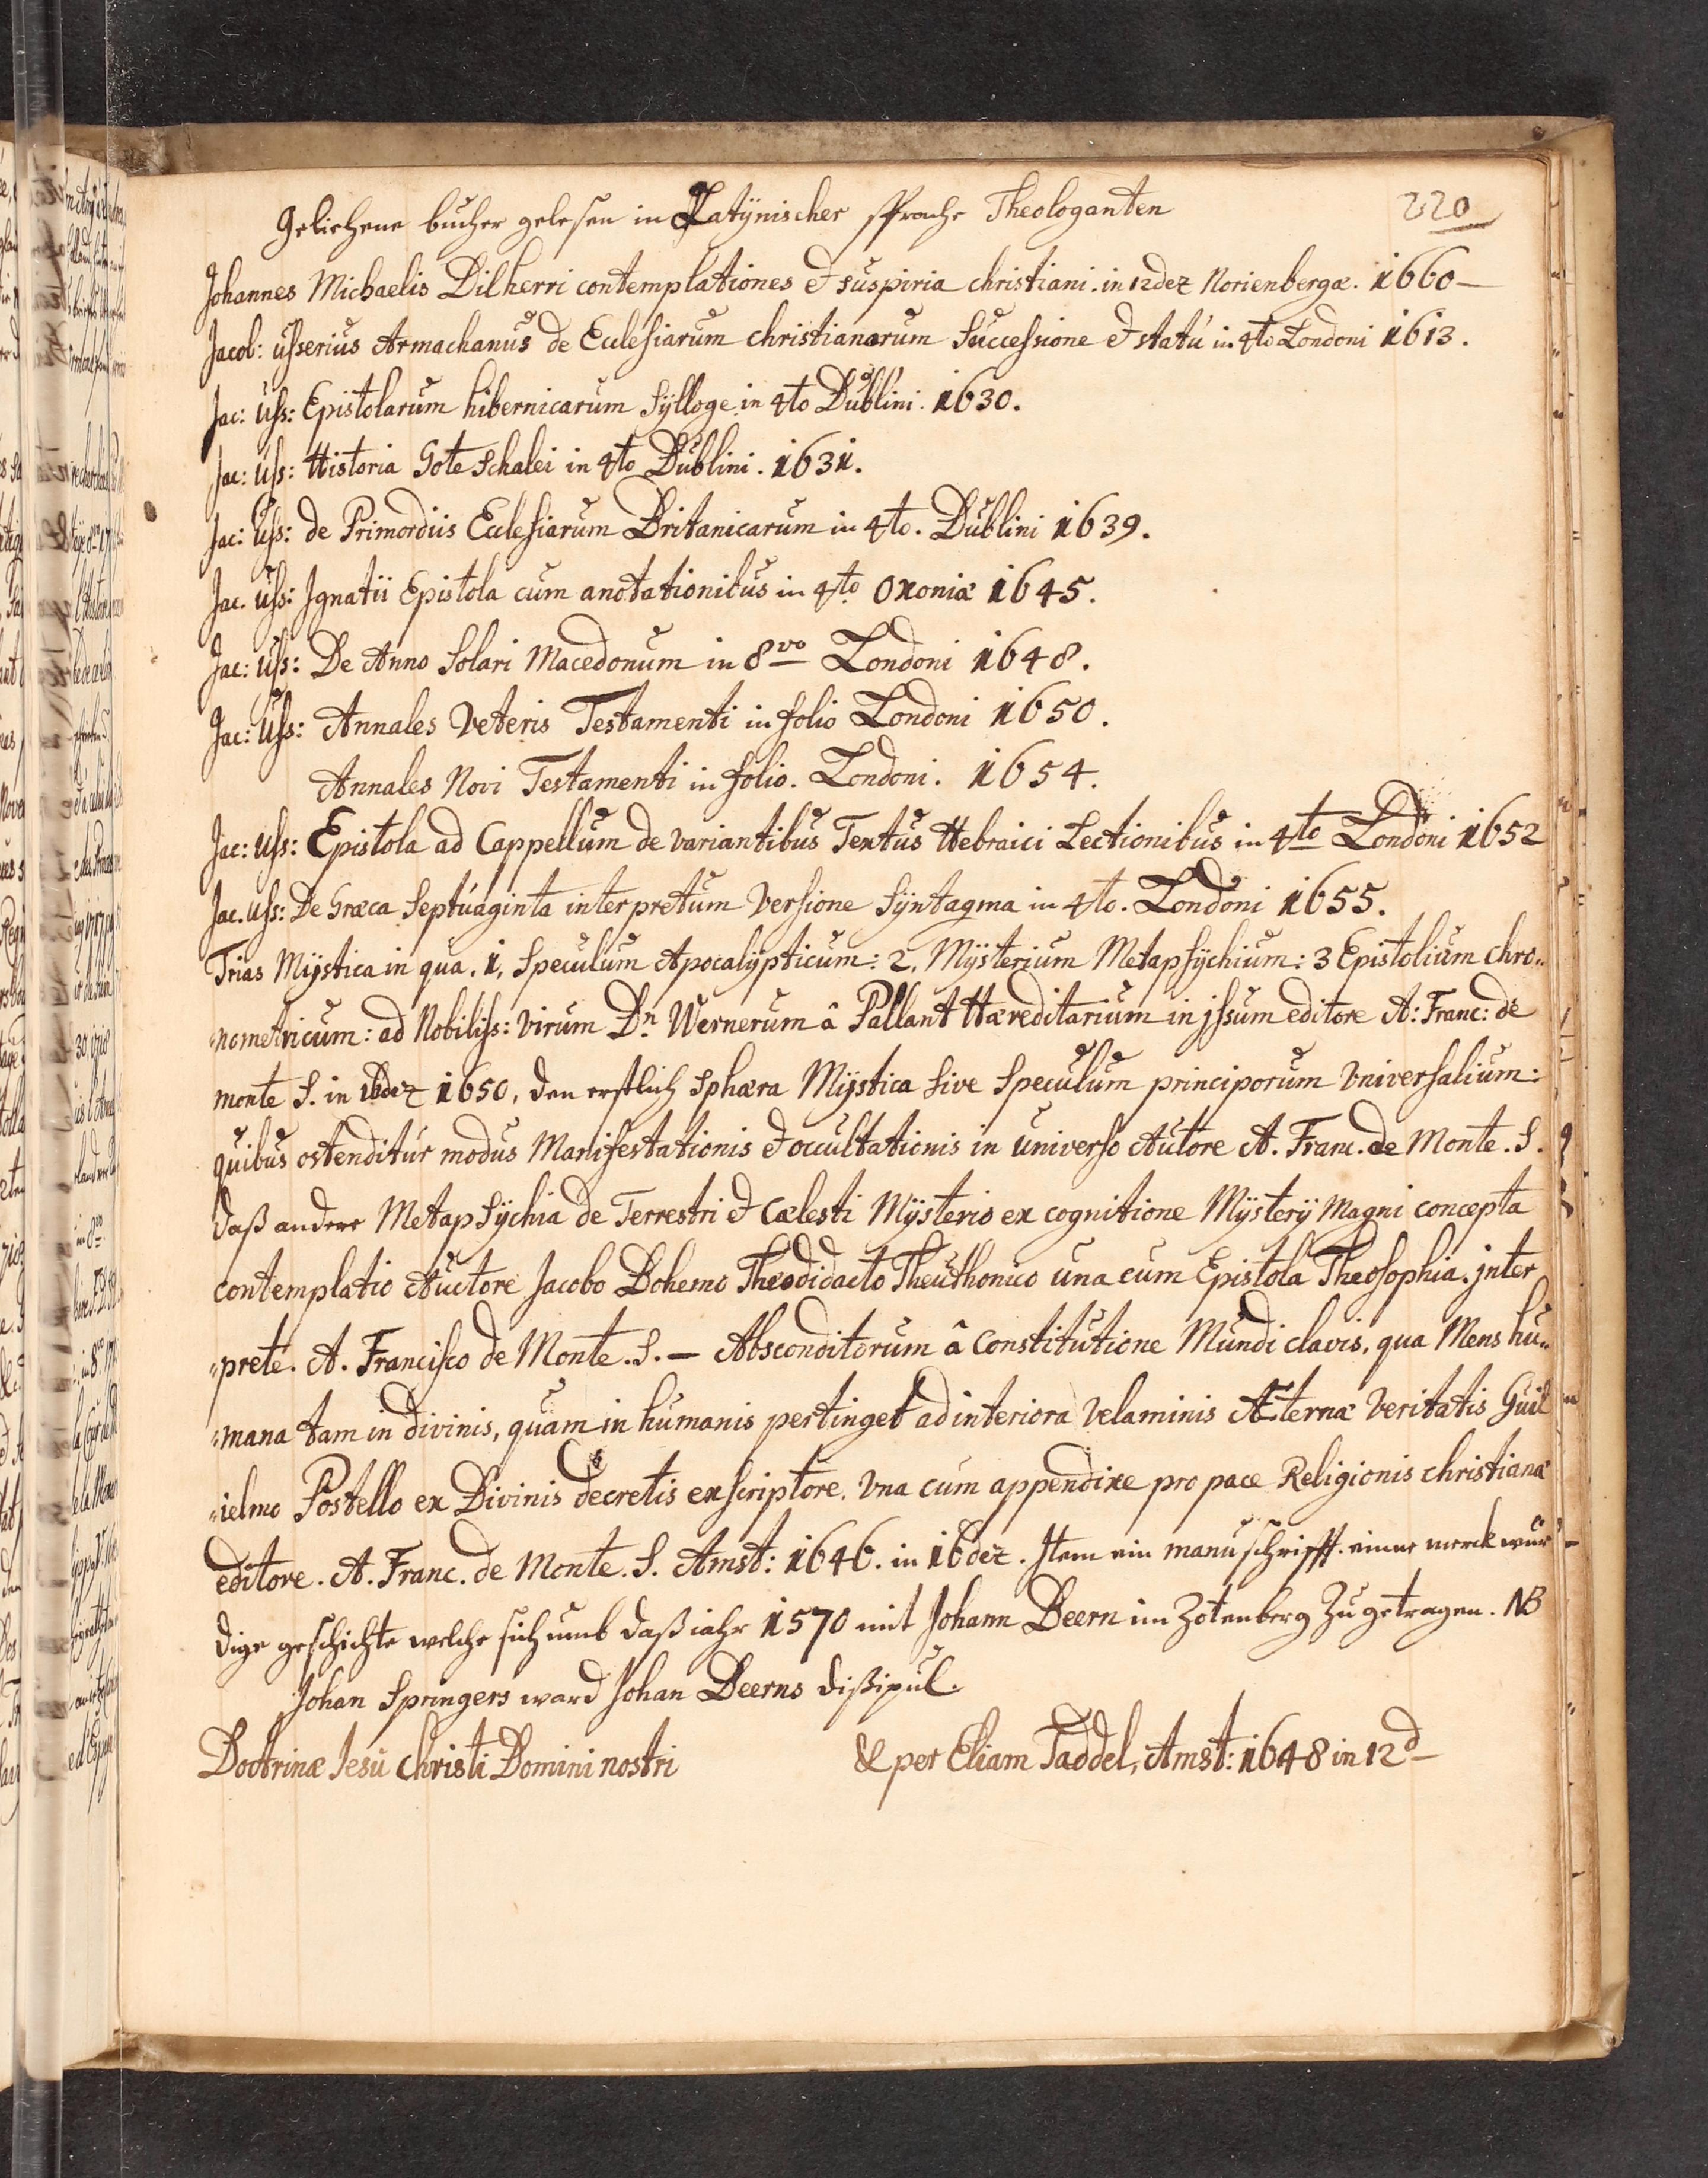 Geliehene bucher gelesen in Latÿnischer sprache Theologanten 220
Johannes Michaelis Dilherri contemplationes & suspiria christiani. in 12dez Norienbergæ. 1660 –
Jacob: usserius Armachanus de Ecclesiarum christianarum Successione & statu in 4to Londoni 1613.
Jac: Uss: Epistolarum hibernicarum Sÿlloge in 4to Dublini. 1630.
Jac: Uss: Historia Goteschalci in 4to Dublini. 1631.
Jac: Uss: de Primordiis Ecclesiarum Britanicarum in 4to. Dublini 1639.
Jac. Uss: Ignatii Epistola cum anotationibus in 4to Oxoniæ 1645.
Jac: Uss: De Anno Solari Macedonum in 8vo Londoni 1648.
Jac: Uss: Annales Veteris Testamenti in folio Londoni 1650.
Annales Novi Testamenti in folio. Londoni. 1654.
Jac: Uss: Epistola ad Cappellum de variantibus Textus Hebraici Lectionibus in 4to Londoni 1652
Jac. Uss: De Græca Septuaginta interpretum Versione Sÿntagma in 4to. Londoni 1655.
Trias Mÿstica in qua. 1, Speculum Apocalÿpticum: 2, Mÿsterium Metapsÿchium: 3 Epistolium chro„
„nometricum: ad Nobiliss: virum Dn Wernerum â Pallant Hæreditarium in jssum editore A: Franc: de
monte S. in 16dez 1650, den erstlich Sphæra Mÿstica sive Speculum principorum Universalium:
quibus ostenditur modus Manifestationis & occultationis in universo Autore A. Franc. de Monte. S.
daß andere Metapsÿchia de Terrestri & Cælesti Mÿsterio ex cognitione Mÿsterÿ Magni concepta
contemplatio Auctore Jacobo Bohemo Theodidacto Theuthonico una cum Epistola Theosophia. jnter
„prete. A. Francisco de Monte. S. – Absconditorum â Constitutione Mundi clavis, qua Mens hu„
„mana tam in divinis, quam in humanis pertinget ad interiora velaminis Æternæ Veritatis Guil
„ielmo Postello ex Divinis decretis exscriptore. Una cum appendixe pro pace Religionis christianæ
editore. A. Franc. de Monte. S. Amst: 1646. in 16dez. Item ein manuschrifft. einne merckwür„
dige geschichte welche sich umb daß iahr 1570 mit Johann Beern im Zotenberg zu getragen. NB
Johan Springers ward Johan Beerns dißipul.
Doctrinæ Jesu Christi Domini nostri & per Eliam Taddel, Amst: 1648 in 12d